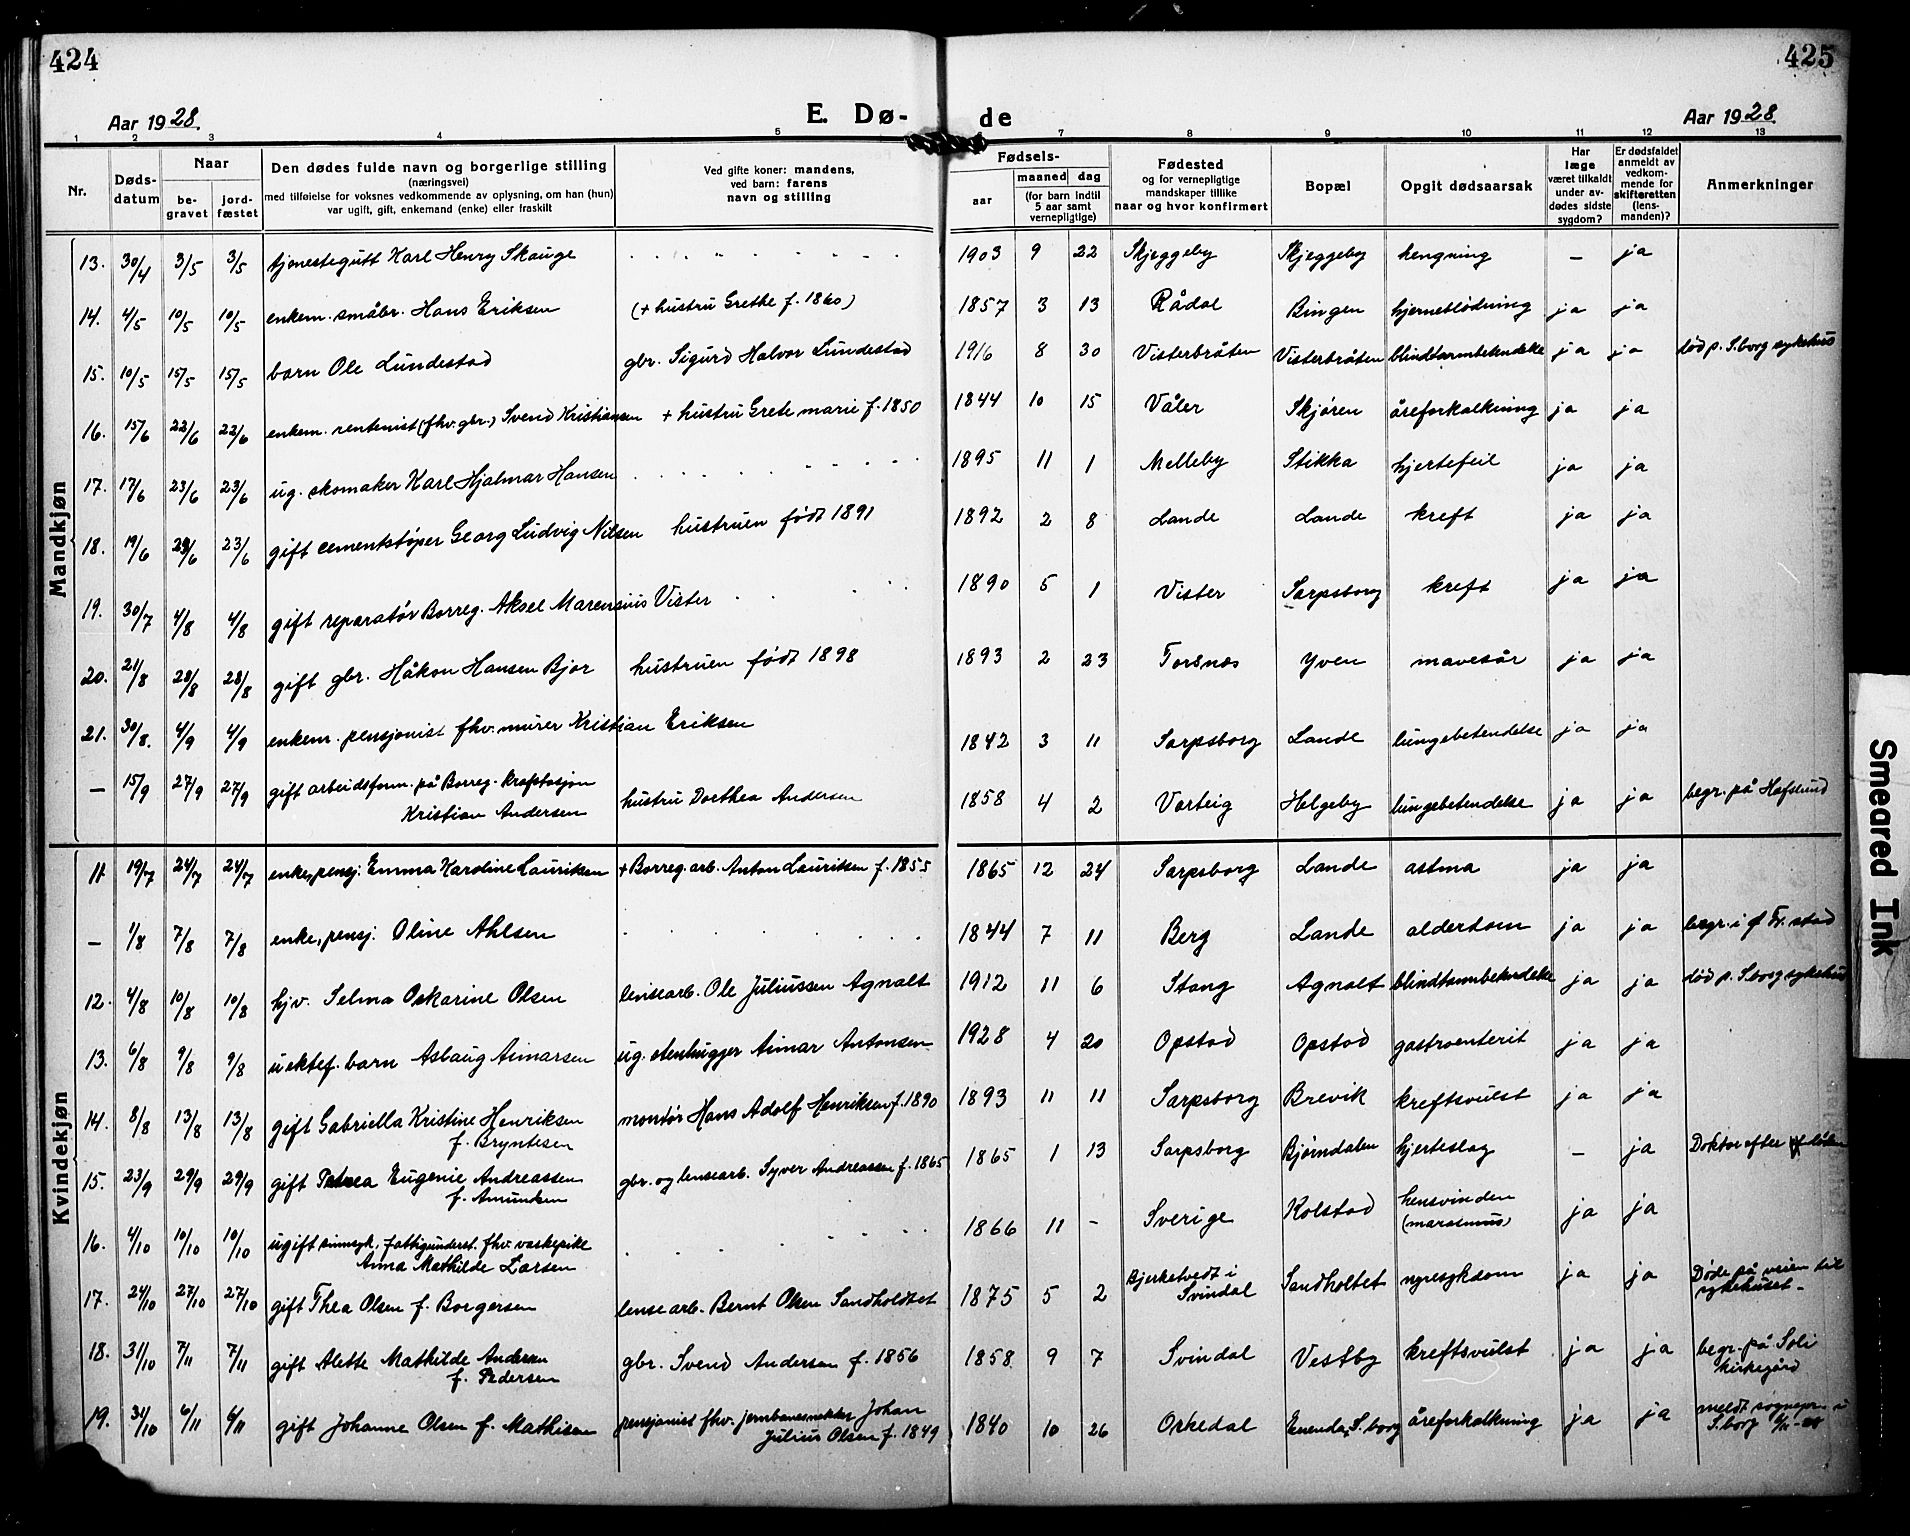 424
425
Aar 1928.
E. Dø-
de
Aar 1928
1 2 3 4 5 7 8 9 10 11 12 13
Nr.
Døds-
datum
Naar
be-
gravet
jord-
fæstet
Den dødes fulde navn og borgerlige stilling
(næringsvei)
med tilføielse for voksnes vedkommende av oplysning, om han (hun)
var ugift, gift, enkemand (enke) eller fraskilt
Ved gifte koner: mandens,
ved barn: farens
navn og stilling
Fødsels-
aar
maaned dag
(for barn indtil
5 aar samt
vernepligtige)
Fødested
og for vernepligtige
mandskaper tillike
naar og hvor konfirmert
Bopæl
Opgit dødsaarsak
Har
læge
været tilkaldt
under av-
dødes sidste
sygdom?
Er dødsfaldet
anmeldt av
vedkom-
mende for
skifteretten
(lens-
manden)?
Anmerkninger
Mandkjøn
13. 30/4 3/5 3/5 tjenestegutt Karl Henry Skauge 1903 9 22 Skjeggeby Skjeggeby hengning – ja
14. 4/5 10/5 10/5 enkem. småbr. Hans Eriksen (+ hustru Grethe f. 1860) 1857 3 13 Rådal Bingen hjerneblødning ja ja
15. 10/5 15/5 15/5 barn Ole Lundestad gbr. Sigurd Halvor Lundestad 1916 8 30 Visterbråten Visterbråten blindtarmbetendelse ja ja død p. S.borg sykehus
16. 15/6 22/6 22/6 enkem. rentenist (fhv. gbr.) Svend Kristiansen + hustru Grete marie f. 1850 1844 10 15 Våler Skjøren åreforkalkning ja ja
17. 17/6 23/6 23/6 ug. skomaker Karl Hjalmar Hansen 1895 11 1 Melleby Stikka hjertefeil ja ja
18. 19/6 23/6 23/6 gift cementstøper Georg Ludvig Nilsen hustruen født 1891 1892 2 8 Lande Lande kreft ja ja
19. 30/7 4/8 4/8 gift reparatør Borreg. Aksel Marensius Vister 1890 5 1 Vister Sarpsborg kreft ja ja
20. 21/8 28/8 28/8 gift gbr. Håkon Hansen Bjor hustruen født 1898 1893 2 23 Torsnes Yven mavesår ja ja
21. 30/8. 4/9 4/9 enkem. pensjonist fhv. murer Kristian Eriksen 1842 3 11 Sarpsborg Lande lungebetendelse ja ja
– 15/9 27/9 27/9 gift arbeidsform. på Borreg. kraftstasjon
Kristian Andersen hustru Dorthea Andersen 1858 4 2 Varteig Helgeby lungebetendelse ja ja begr. på Hafslund
Kvindekjøn
11 19/7 24/7 24/7 enke, pensj. Emma Karoline Lauritsen + Borreg. arb. Anton Lauritsen f. 1855 1865 12 24 Sarpsborg Lande astma ja ja
– 1/8 7/8 7/8 enke, pensj. Oline Ahlsen 1844 7 11 Berg Lande alderdom ja ja begr. i Ø Fr. stad
12. 4/8 10/8 10/8 hjv. Selma Oskarine Olsen lensearb. Ole Juliussen Agnalt 1912 11 6 Stang Agnalt blindtarmbetendelse ja ja død p. S.borg sykehus
13. 6/8 9/8 9/8 uektef. barn Asbaug Aimarsen ug. stenhugger Aimar Antonsen 1928 4 20 Opstad Opstad gastroenterit ja ja
14. 8/8 13/8 13/8 gift Gabriella Kristine Henriksen
f. Bryntesen montør Hans Adolf Henriksen f. 1890 1893 11 11 Sarpsborg Brevik kreftsvulst ja ja
15. 23/9 29/9 29/9 gift Petrea Eugenie Andreassen
f. Amundsen gbr. og lensearb. Syver Andreassen f. 1865 1865 1 13 Sarpsborg Bjørndalen hjerteslag – ja Doktor efter døden
16. 4/10 10/10 10/10 ugift sinnsyk, fattigunderst. fhv. vaskepike
Anna Mathilde Larsen 1866 11 – Sverige Kolstad hensvinden
(marasmus) ja ja
17. 24/10 27/10 27/10 gift Thea Olsen f. Borgersen lensearb. Bernt Olsen Sandholdtet 1875 5 2 Bjerketvedt i
Svindal Sandholtet nyresykdom ja ja Døde på veien til
sykehuset –
18. 31/10 7/11 7/11 gift Alette Mathilde Andersen
f. Pedersen gbr. Svend Andersen f. 1856 1858 9 7 Svindal Vestby kreftsvulst ja ja begr. på Soli
kirkegård
19. 31/10 6/11 6/11 gift Johanne Olsen f. Mathisen pensjonist fhv. Johan
Julius Olsen f. 1849 1840 10 26 Orkedal S.borg åreforkalkning ja ja meldt sognepr. i
S.borg
Smeared Ink